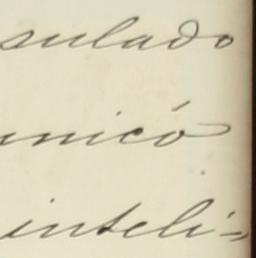 sulado
unicó
inteli-